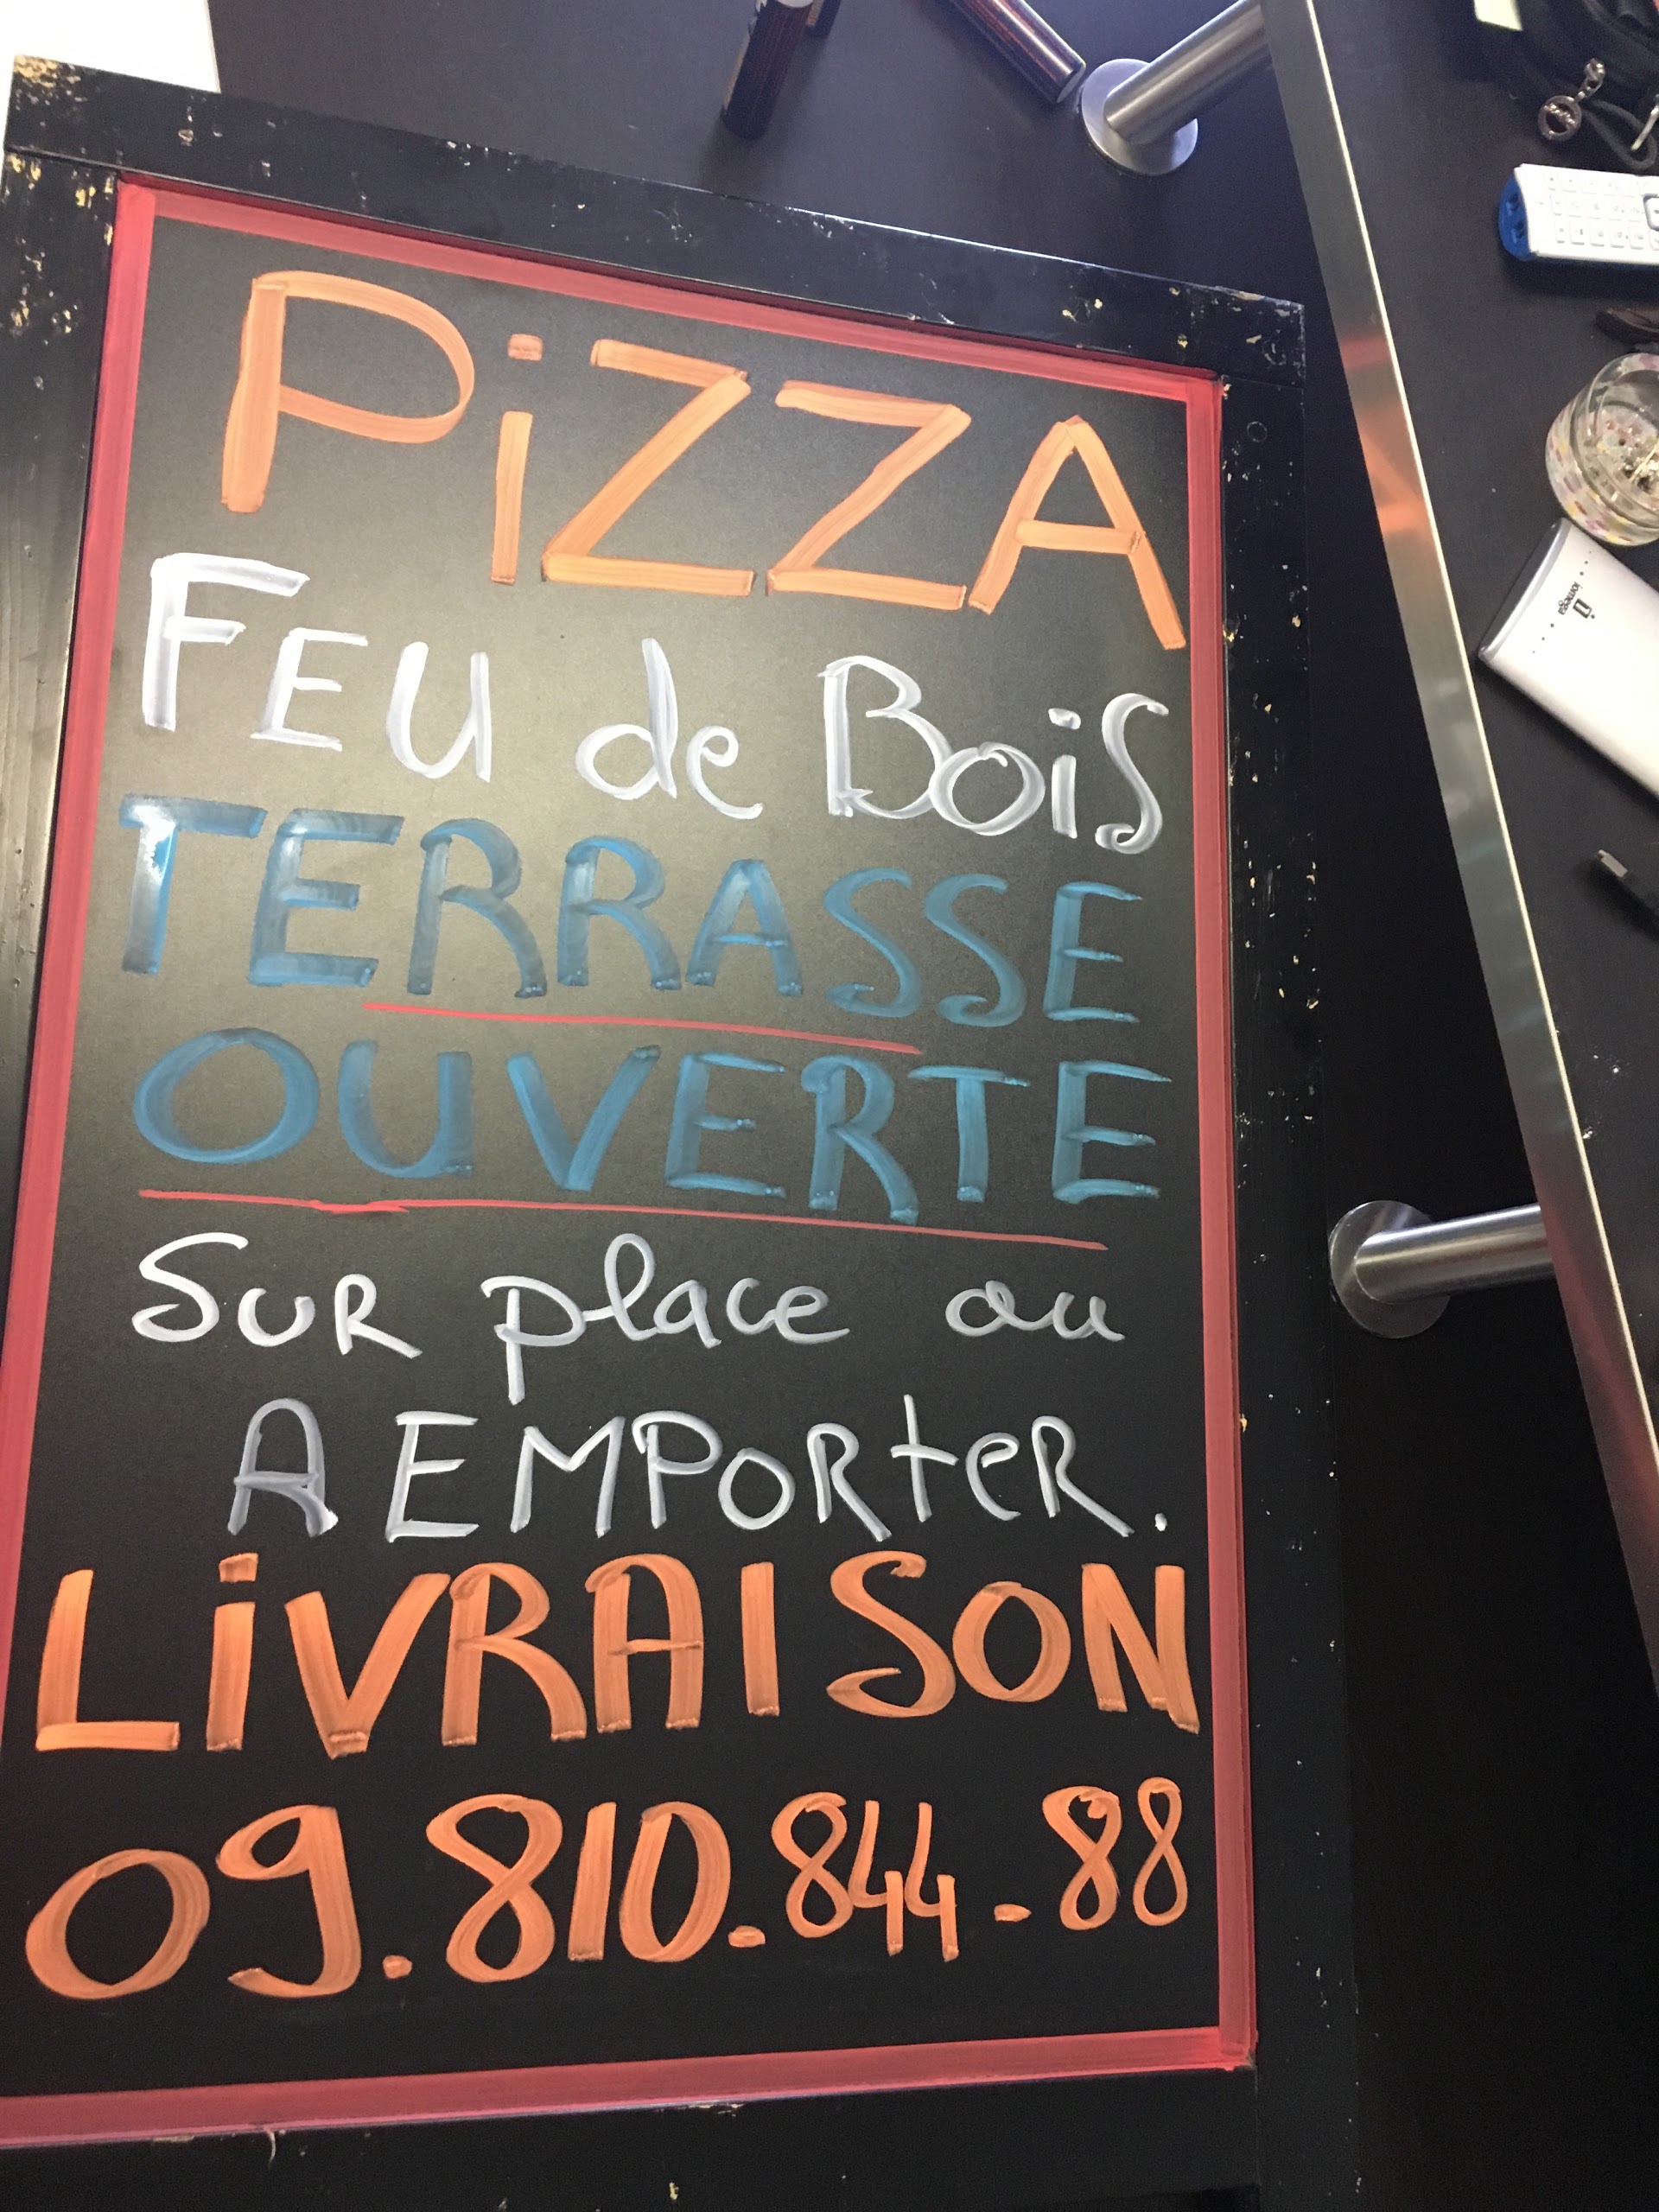 PiZZA
FEU de Bois
TERRASSE
OUVERTE
SUR place ou
A EMPORteR.
LiVRAISON
09.810.844.88
iomega